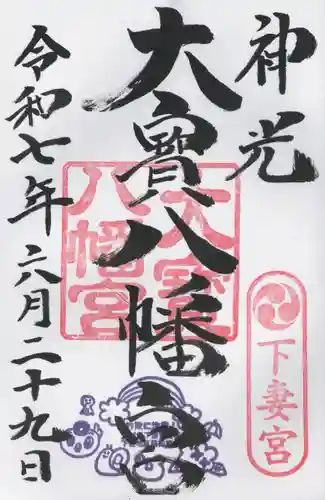 神光
大寶八幡宮
令和七年六月二十九日
大宝
八幡宮
下妻宮